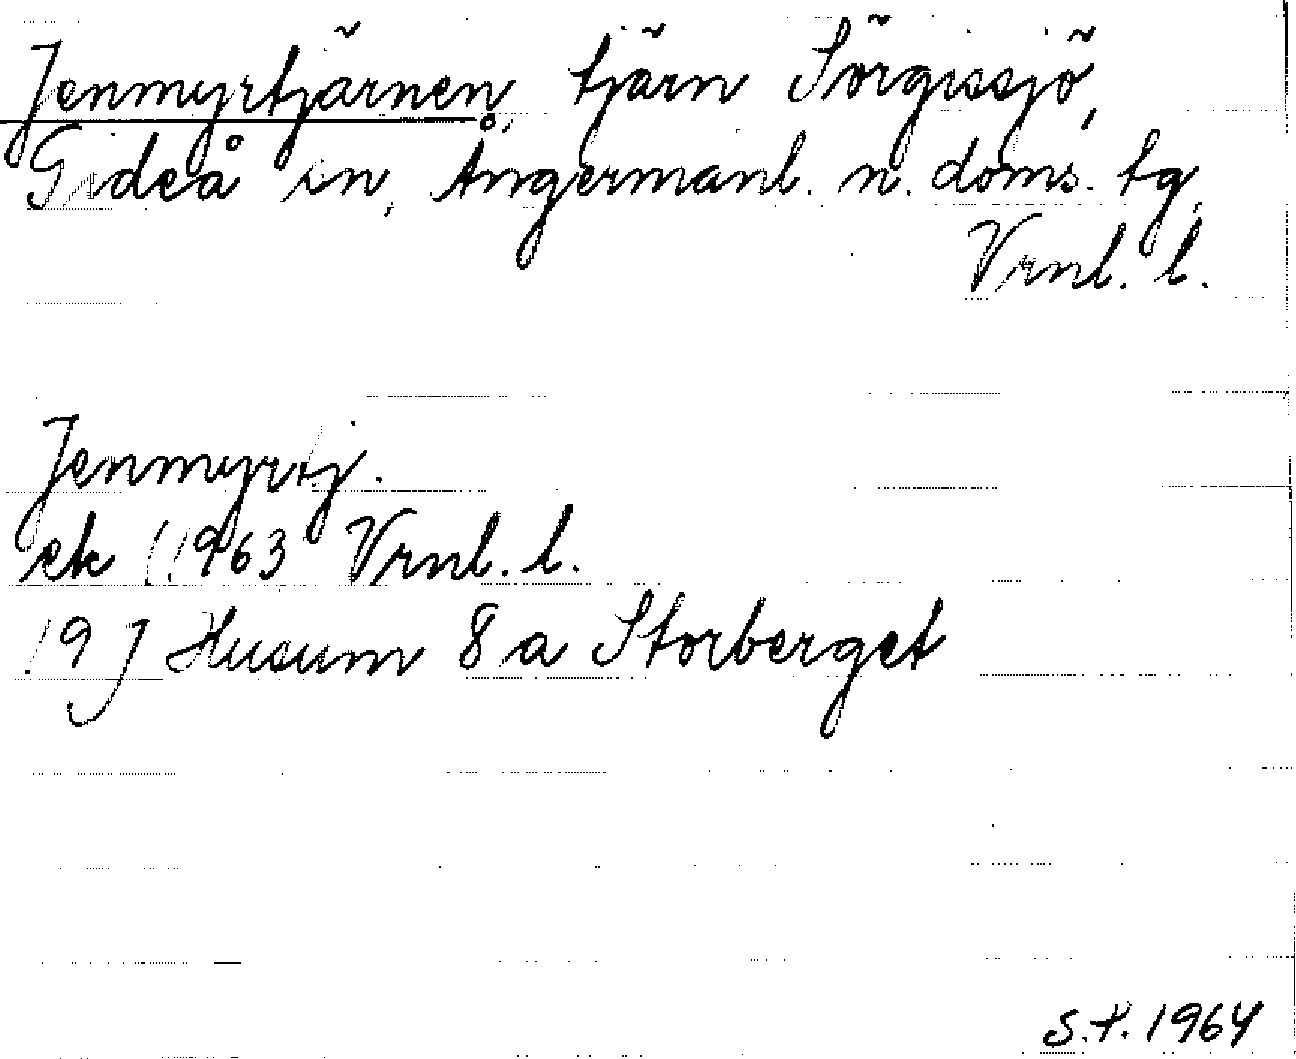 Jenmyrtjärnen, tjärn Sörgissjö,
Gideå sn, Ångermanl. n. doms. tg,
Vrnl. l.
Jenmyrtj.
ek 1963 Vrnl. l.
19 J Husum 8 a Storberget
S.F. 1964